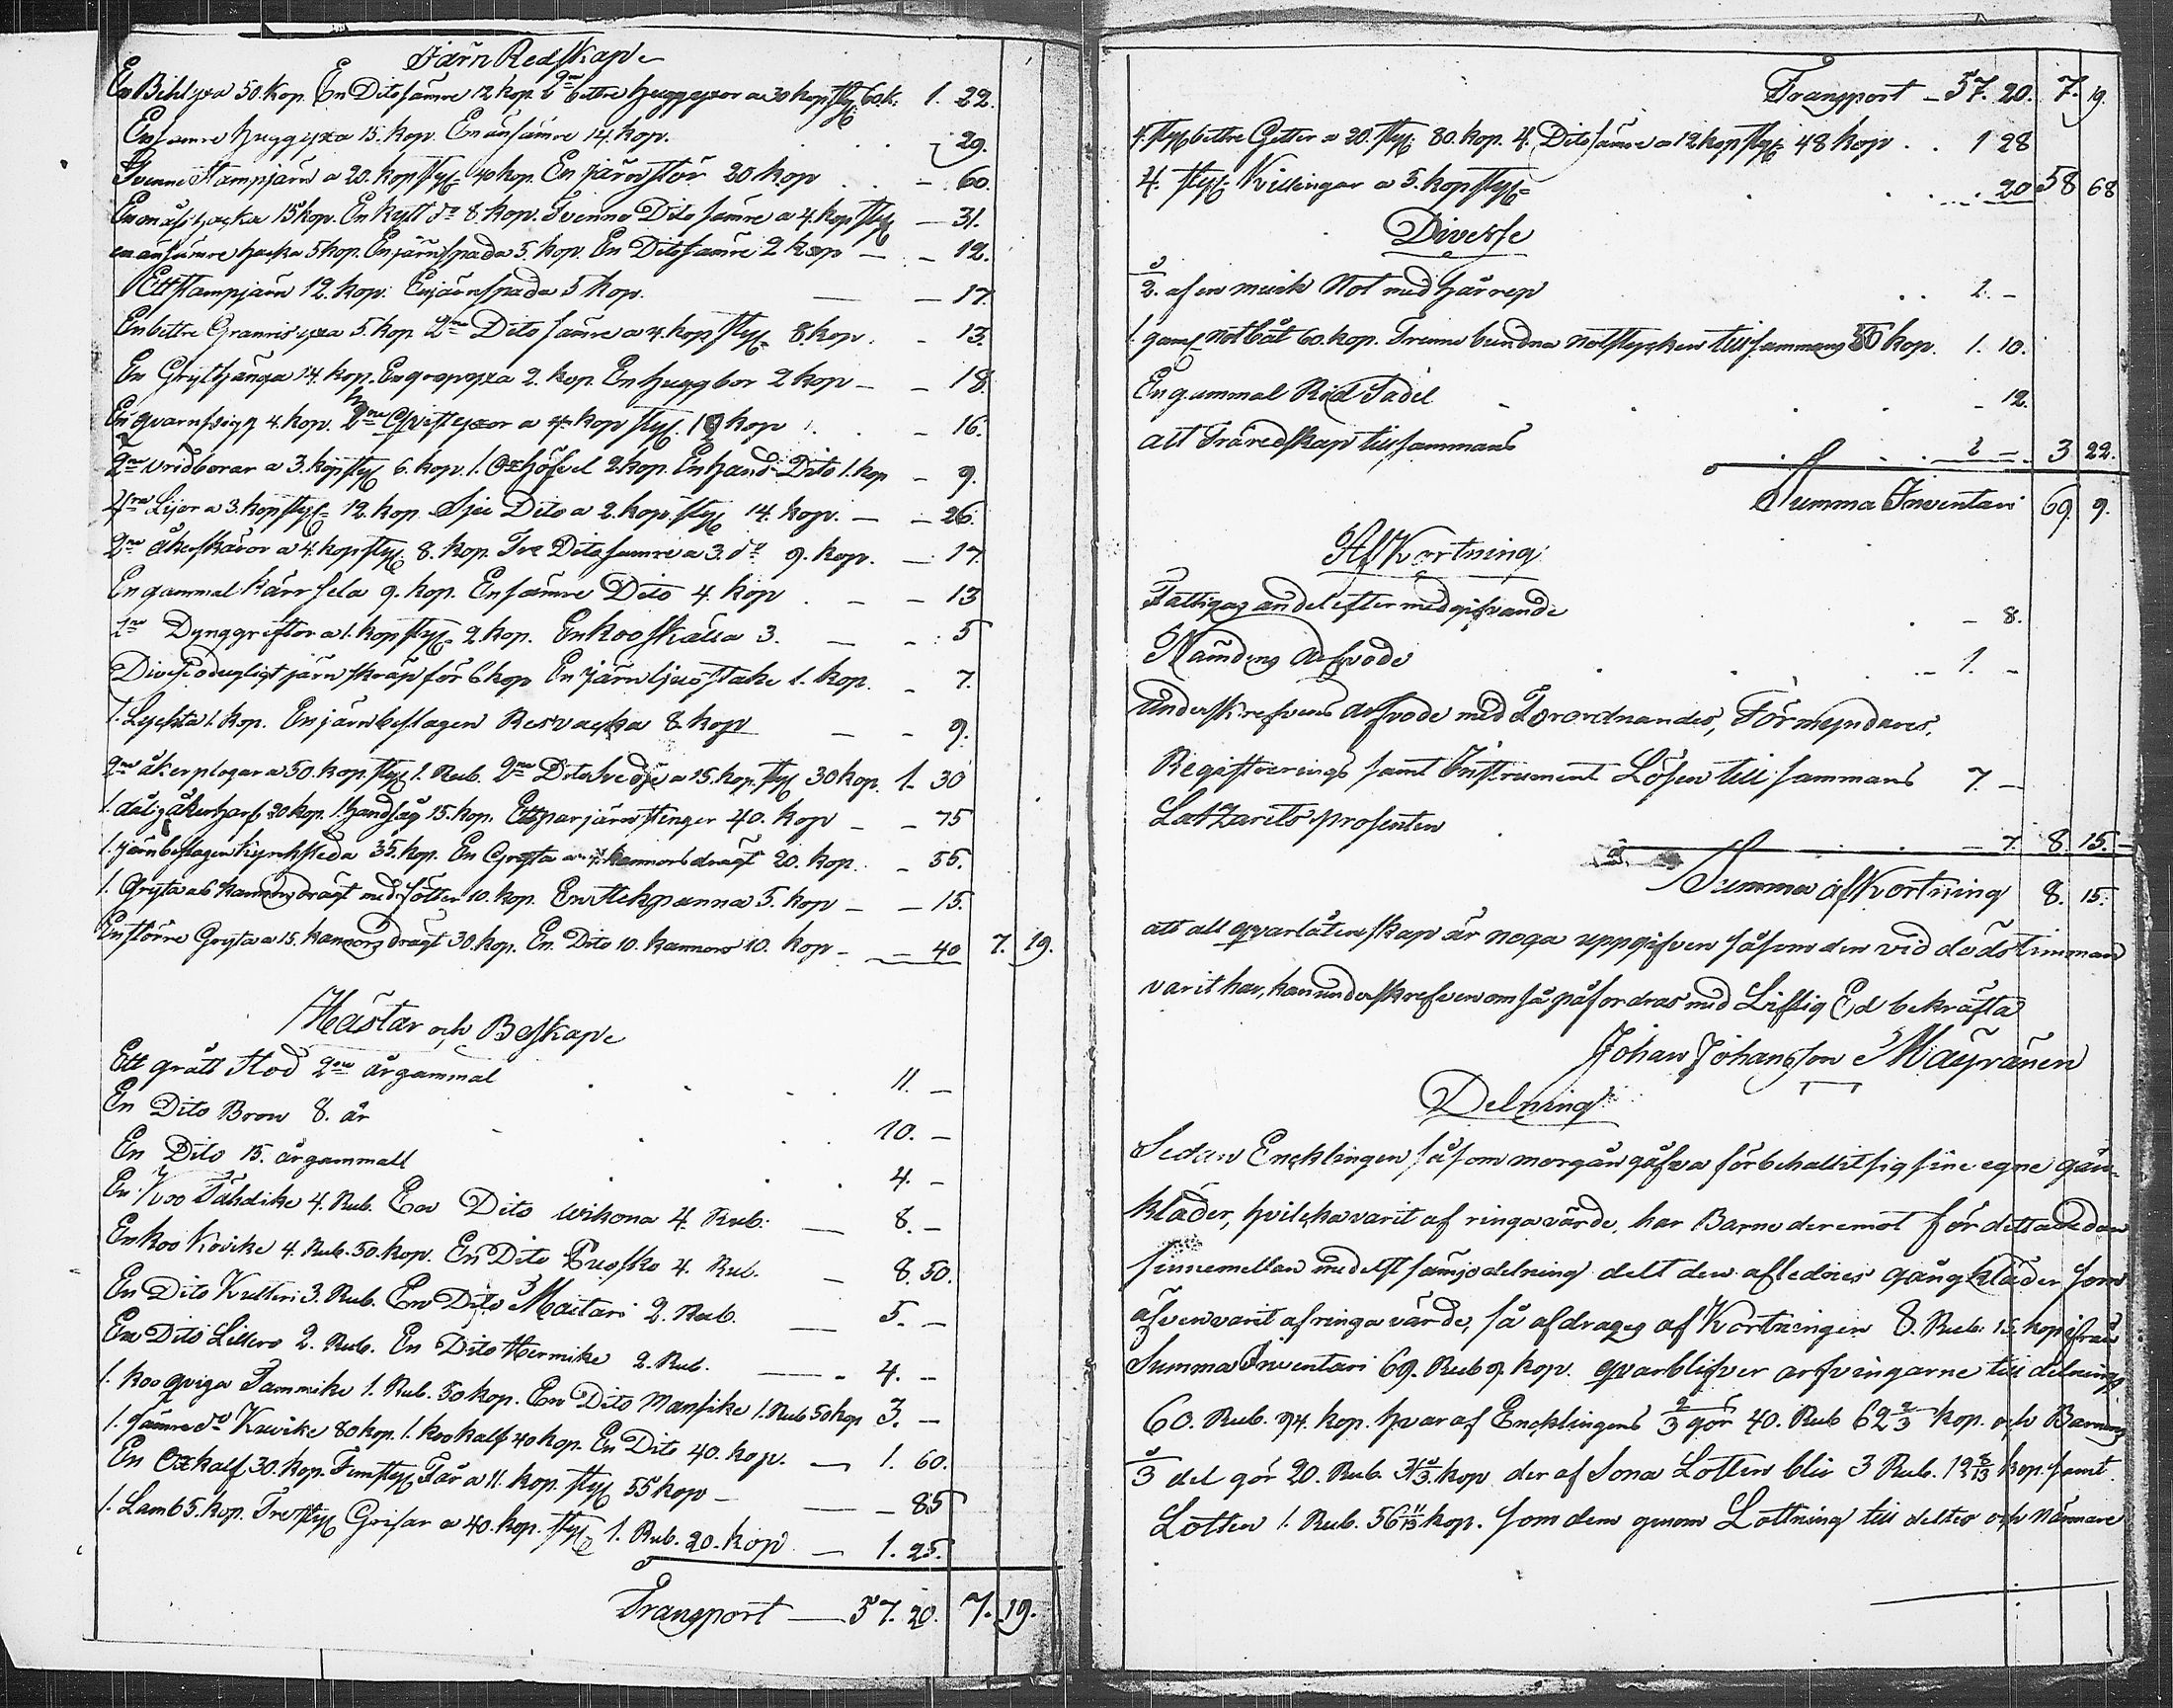 Järn Redskap
En Bihlyxa 50. Kop. En Dito sämre 12 kop. 2ne bettre huggyxor a 30 kop. styk 60 k. 1. 22.
En samre huggyxa 15. kop. En än sämre 14. kop. - 29.
Tvenne Stampjärn a 20. kop styk 40 kop. En järnstör 20 kop - 60.
En hacka 15 kop. En kytt do 8. kop. Tvenne Dito sämre a 4. kop styk - 31.
en än sämre hacka 5 kop. En järnspada 5. kop. En Dito sämre 2 kop - 12.
Ett stampjärn 12. kop. En järnspada 5 kop. - 17.
En bettre Granrisyxa 5. kop. 2ne Dito sämre a 4. kop styk 8. kop. - 13.
En Gryttjänga 14. kop. En gropyxa 2. kop. En huggbor 2 kop - 18.
En qvarnbigg 4. kop. 3ne Qvistyxor a 4 kop styk. 12 kop - 16.
2ne vridborar a 3. kop styk 6. kop. 1. Oxhöfvel 2 kop. En hand Dito 1. kop - 9.
4ra Lijor a 3. kop styk 12. kop. Sju Dito a 2. kop. styk 14. kop. - 26.
2ne åkerskäror a 4. kop styk. 8. kop. Tre Dito samre a 3. do 9. kop. - 17.
En gammal kärrsela 9. kop. En sämre Dito 4. kop - 13
2ne Dynggreftor a 1. kop styk 2 kop. En kooskälla 3. - 5
Diverse odugligt järnskrap för 6 kop En järn ljusstake 1. kop. - 7.
1. Lyckta 1. kop. En järnbeslagen Resvacka 8. kop - 9.
2ne åkerplogar a 50. kop. styk 1. Rub. 2ne Dito svedje a 15. kop. styk 30 kop. 1. 30
1. dålig åkerharf 20 kop. 1. handsåg 15. kop. Ett par järnstenger 40. kop - 75
1. järnbeslagen kyrksleda 35. kop. En Gryta a kannors drägt 20. kop. - 55.
1. Gryta a 6 kannors drägt med fötter 10. kop. En stekpanna 5. kop - 15.
En större Gryta a 15. kannors drägt 30. kop. En Dito 10. kannors 10. kop - 40 7. 19.
Hästar och Boskap
Ett grått Stod 2ne år gammal 11. -
En Dito Brun 8. år 10. -
En Dito 15. år gammall 4. -
En Koo Tähdike 4. Rub. En Dito Wihona 4. Rub. 8. -
En koo Kovike 4. Rub. 50. kop. En Dito Tuosko 4. Rub. - 8. 50.
En Dito Kulteri 3. Rub. En Dito Maitari 2. Rub. 5. -
En Dito Lillero 2. Rub. En Dito Hermike 2. Rub. 4. -
1. koo qviga Tammike 1. Rub. 50 kop. En Dito Mansike 1. Rub 50 kop 3. -
1. sämre do Kuvike 80 kop. 1. koo kalf 40 kop. En Dito 40. kop. 1. 60.
En Oxkalf 30. kop. Fem styk. Får a 11. kop. styk 55 kop - 85
1. Lamb 5. kop. Tre styk Grisar a 40. kop. styk 1. Rub. 20. kop 1. 25.
Transport - 57. 20. 7. 19.
Transport - 57. 20. 7. 19.
4. styk bettre Getter a 20. styk. 80. kop. 4. Dito sämre a 12 kop styk 48 kop . . 1 28
4. styk. Killingar a 5. kop styk 20 58 68
Diverse
1/2. af en Not med hårrep 2. -
1. gaml. Notbåt 60. kop. Trenne bundna notstycken tillsammans 50 kop. 1. 10.
En gammal Rid Sadel - 12.
allt Träredskap tillsammans - 3 22.
Summa Inventari 69. 9.
Afkortning
Fattigas andel efter medgifvande - 8.
Nämdens arfvode 1. -
Underskrefvens arfvode med Förordnandes, Förmyndares,
Registrerings samt Instrument Lösen till sammans 7. -
Latzarets prosenten - 7. 8. 15. -
Summa afkortning 8. 15.
att all qvarlåtenskap är noga uppgifven såsom den vid dödstimman
varit har, kan underskrefven om så påfordras med Liflig Ed bekräfta
Johan Johansson Mäyränen
Delning
Sedan Encklingen såsom morgångåfva förbehallit sig sine egne gån-
kläder, hvilcka varit af ringa värde, har Barne deremot för detta redan
sinnemellan medelst samjo delning delt den aflednes gångkläder som
äfven varit af ringa värde, så afdrages af Kortningen 8. Rub. 15. kop ifrån
Summa Inventari 69. Rub 9. kop. qvarblifver arfvingarne till delnings
60. Rub. 94. kop. hvaraf Encklingens 2/3 gör 40. Rub 62 2/3 kop. och Barnens
1/3 del gör 20. Rub. 31 1/3. kop der af Sona Lotten blir 3 Rub. 12 8/13 kop. samt
Lotten 1. Rub. 56 4/13 kop. som dem genom Lottning till deltes och närmare